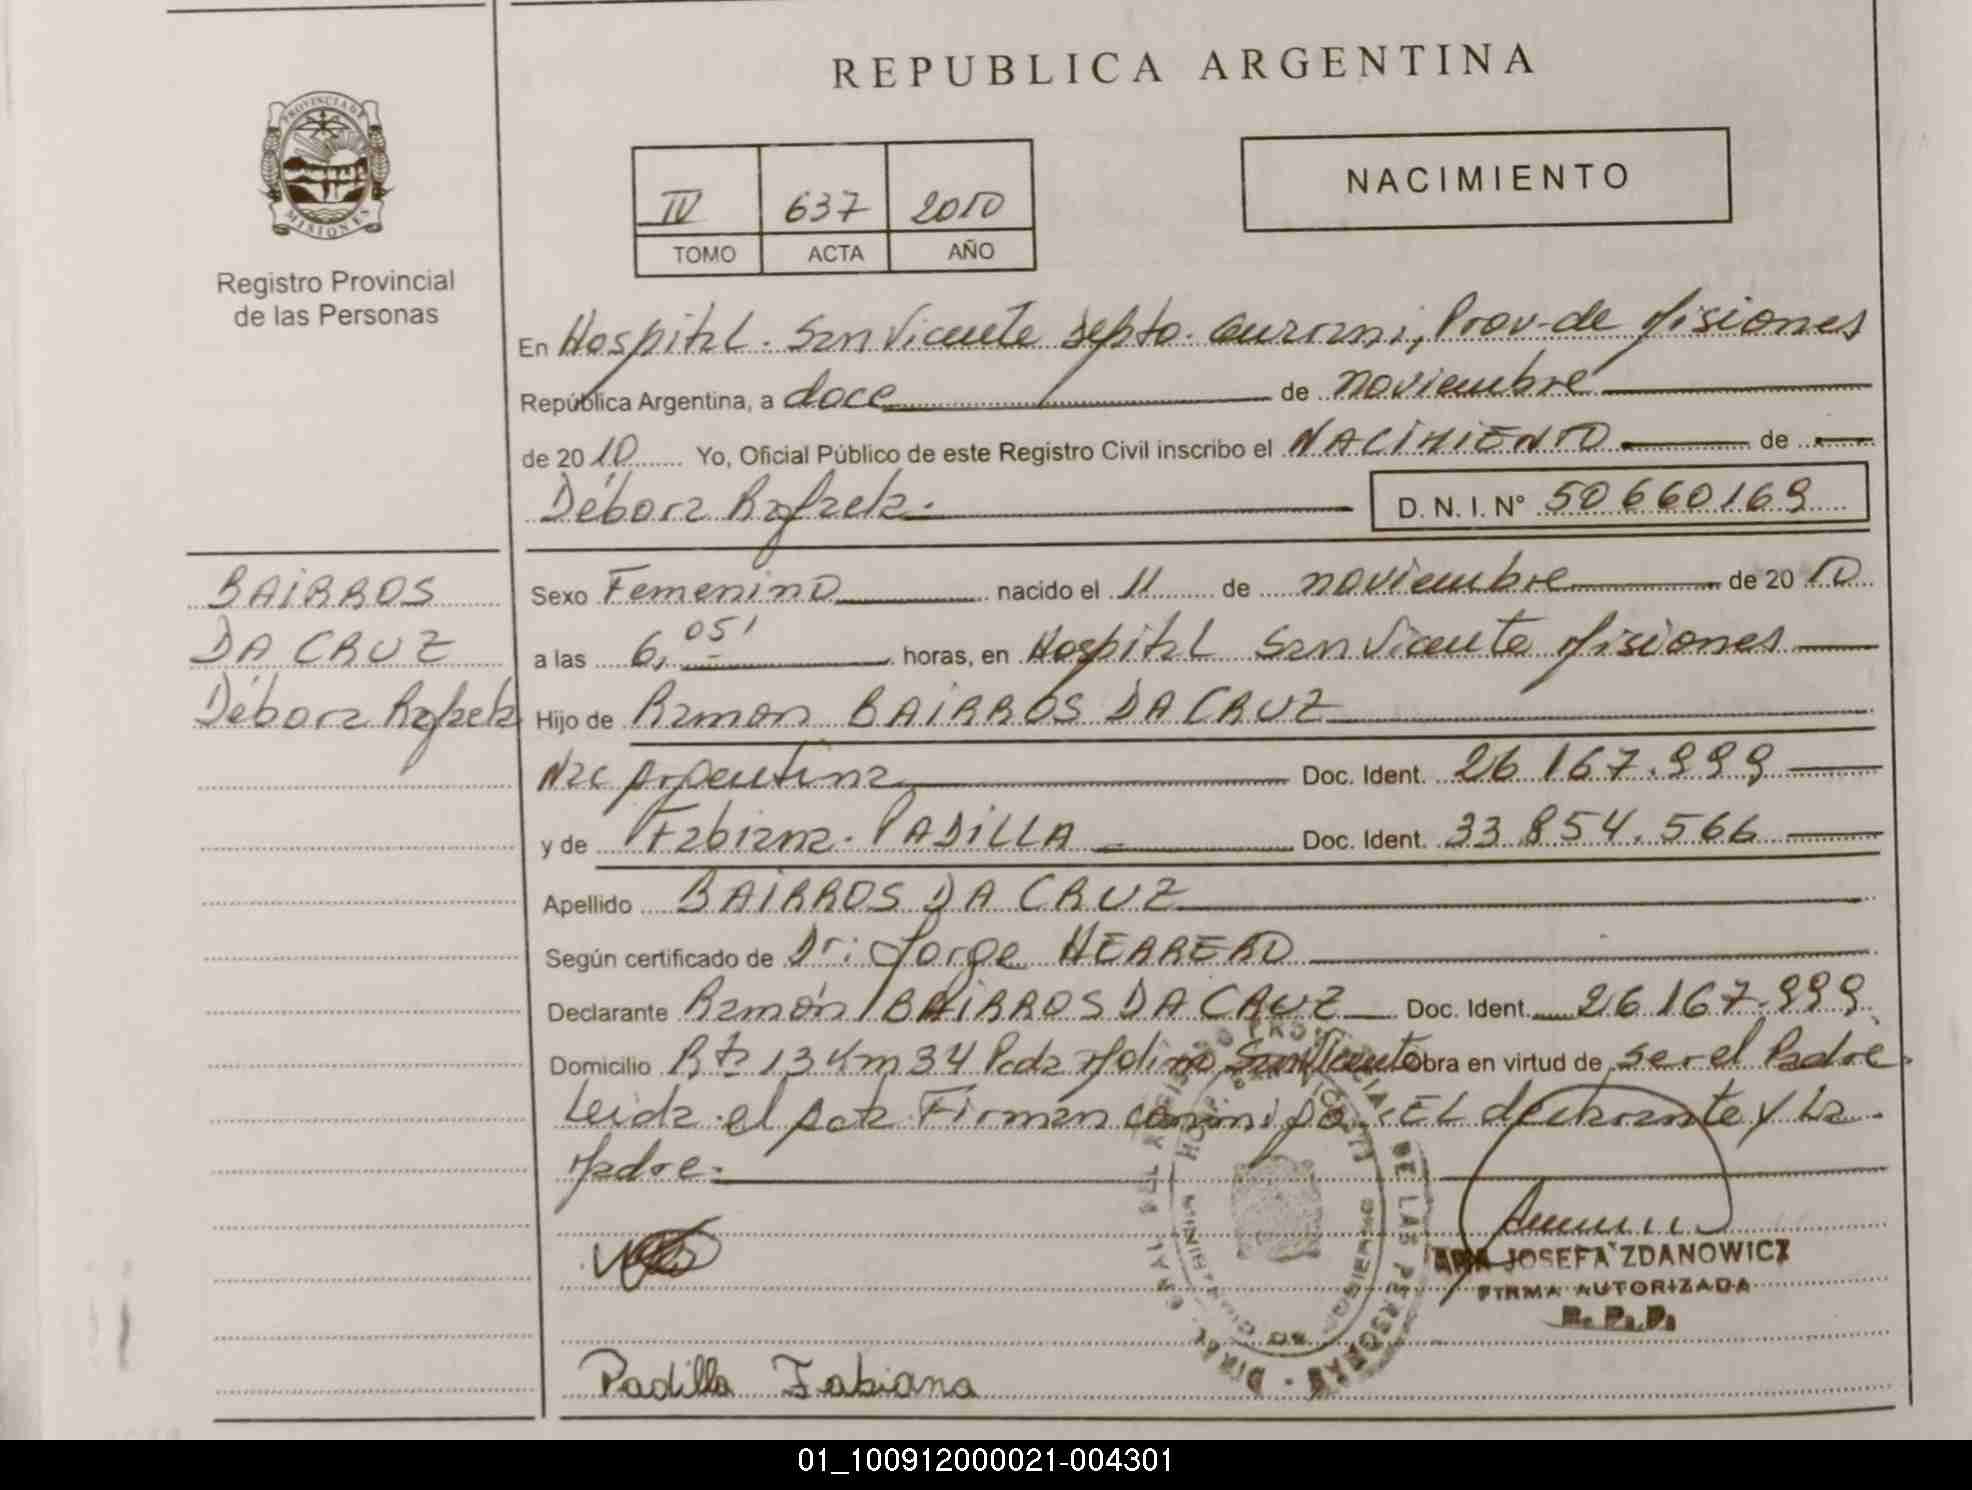 REPUBLICA ARGENTINA
PROVINCIA DE
MISIONES
Registro Provincial
de las Personas
IV 637 2010
TOMO ACTA AÑO
NACIMIENTO
En Hospital. San Vicente Depto. Guarani, Prov. de Misiones
República Argentina, a doce de noviembre
de 2010 Yo, Oficial Público de este Registro Civil inscribo el NACIMIENTO de
Débora Rafaela. D. N. I. N° 50660169
BAIRROS
DA CRUZ
Débora Rafaela
Sexo Femenino nacido el 11 de noviembre de 2010
a las 6,05' horas, en Hospital San Vicente Misiones
Hijo de Ramon BAIRROS DA CRUZ
Nac Argentina Doc. Ident. 26167.999
y de Fabiana. PADILLA Doc. Ident. 33854.566
Apellido BAIRROS DA CRUZ
Según certificado de Dr: Jorge HERRERO
Declarante Ramón BAIRROS DA CRUZ Doc. Ident. 26167.999
Domicilio Rta 13 Km 34 Pcda Molino San Vicente Obra en virtud de ser el Padre
Leida el Acta Firman conmigo. EL declarante y La
Madre.
DE LAS PERSONAS
ANA JOSEFA ZDANOWICZ
FIRMA AUTORIZADA
R. P. P.
Padilla Fabiana
01_100912000021-004301